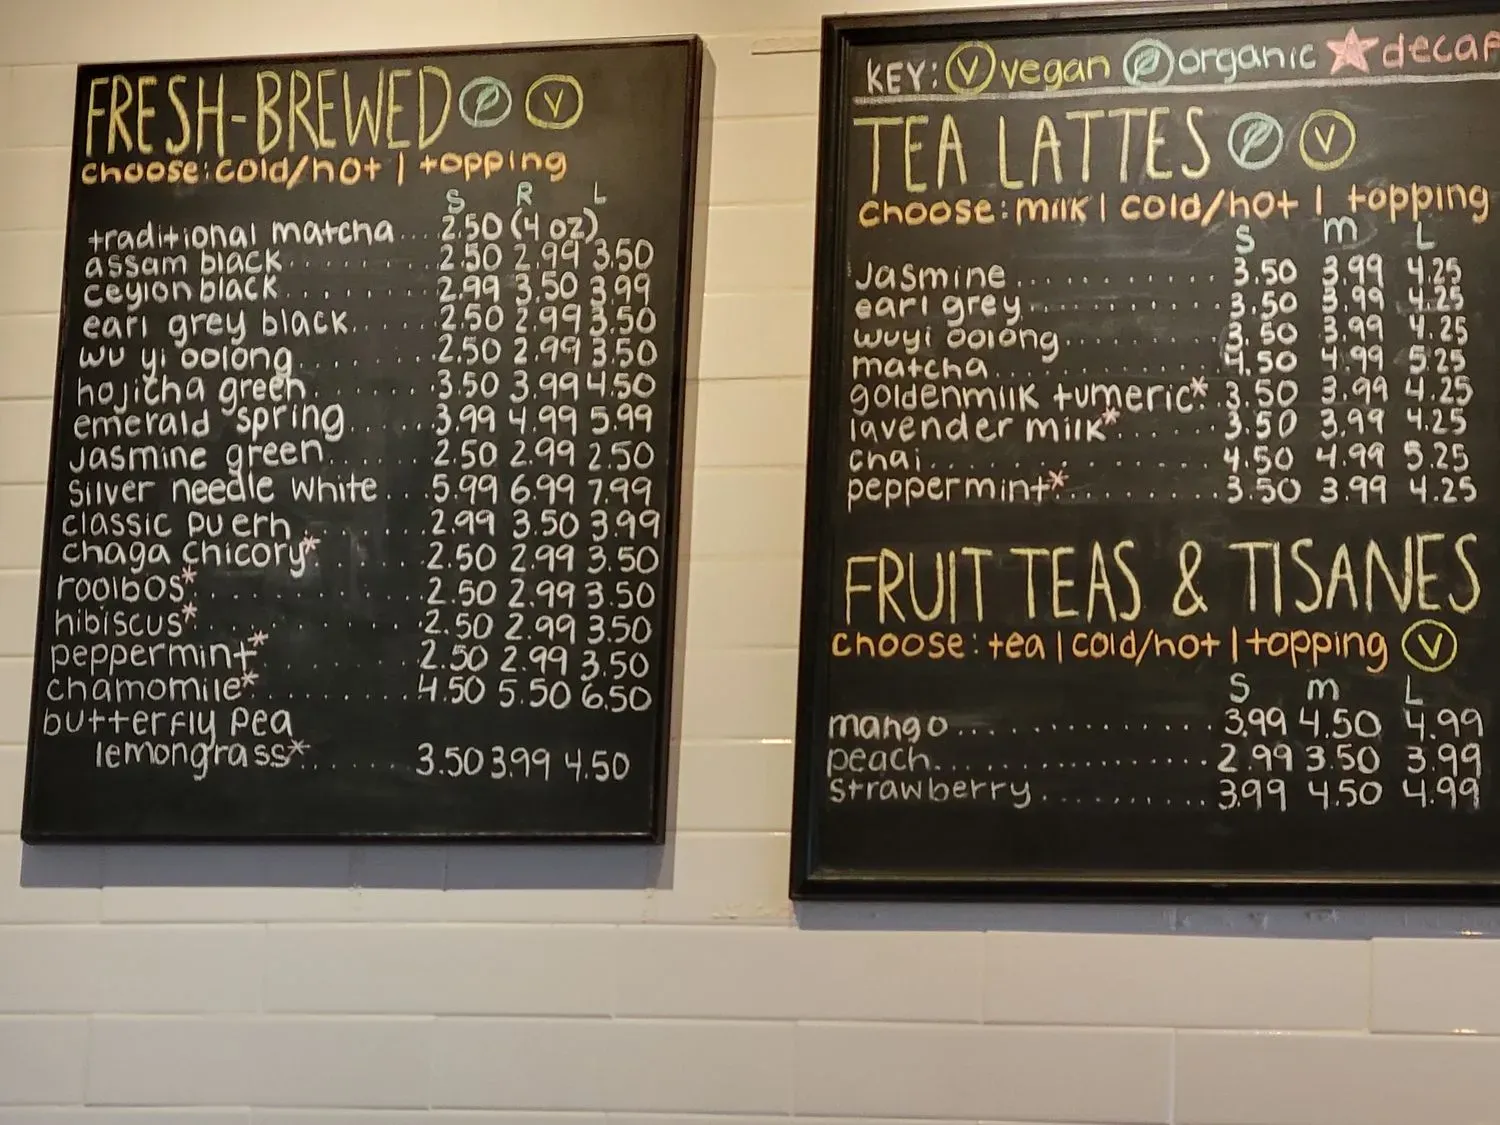 FRESH-BREWED V
choose: cold/hot | topping
S R L
traditional matcha...2.50 (4 oz)
assam black........2.50 2.99 3.50
ceylon black........2.99 3.50 3.99
earl grey black......2.50 2.99 3.50
wu yi oolong........2.50 2.99 3.50
hojicha green.......3.50 3.99 4.50
emerald spring......3.99 4.99 5.99
Jasmine green......2.50 2.99 2.50
Silver needle white...5.99 6.99 7.99
classic pu erh.......2.99 3.50 3.99
chaga chicory*......2.50 2.99 3.50
rooibos*...........2.50 2.99 3.50
hibiscus*...........2.50 2.99 3.50
peppermint*........2.50 2.99 3.50
chamomile*.........4.50 5.50 6.50
butterfly pea
lemongrass*......3.50 3.99 4.50
KEY: V vegan organic decaf
TEA LATTES V
choose: milk | cold/hot | topping
S m L
Jasmine............3.50 3.99 4.25
earl grey...........3.50 3.99 4.25
wuyi oolong.........3.50 3.99 4.25
matcha............4.50 4.99 5.25
goldenmilk tumeric*..3.50 3.99 4.25
lavender milk*......3.50 3.99 4.25
chai...............4.50 4.99 5.25
peppermint*........3.50 3.99 4.25
FRUIT TEAS & TISANES
choose: tea | cold/hot | topping V
S m L
mango.............3.99 4.50 4.99
peach..............2.99 3.50 3.99
Strawberry..........3.99 4.50 4.99